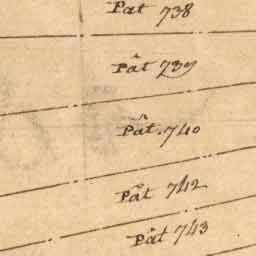 Pât 738
Pât 739
Pât. 740
Pât 742
Pât 743